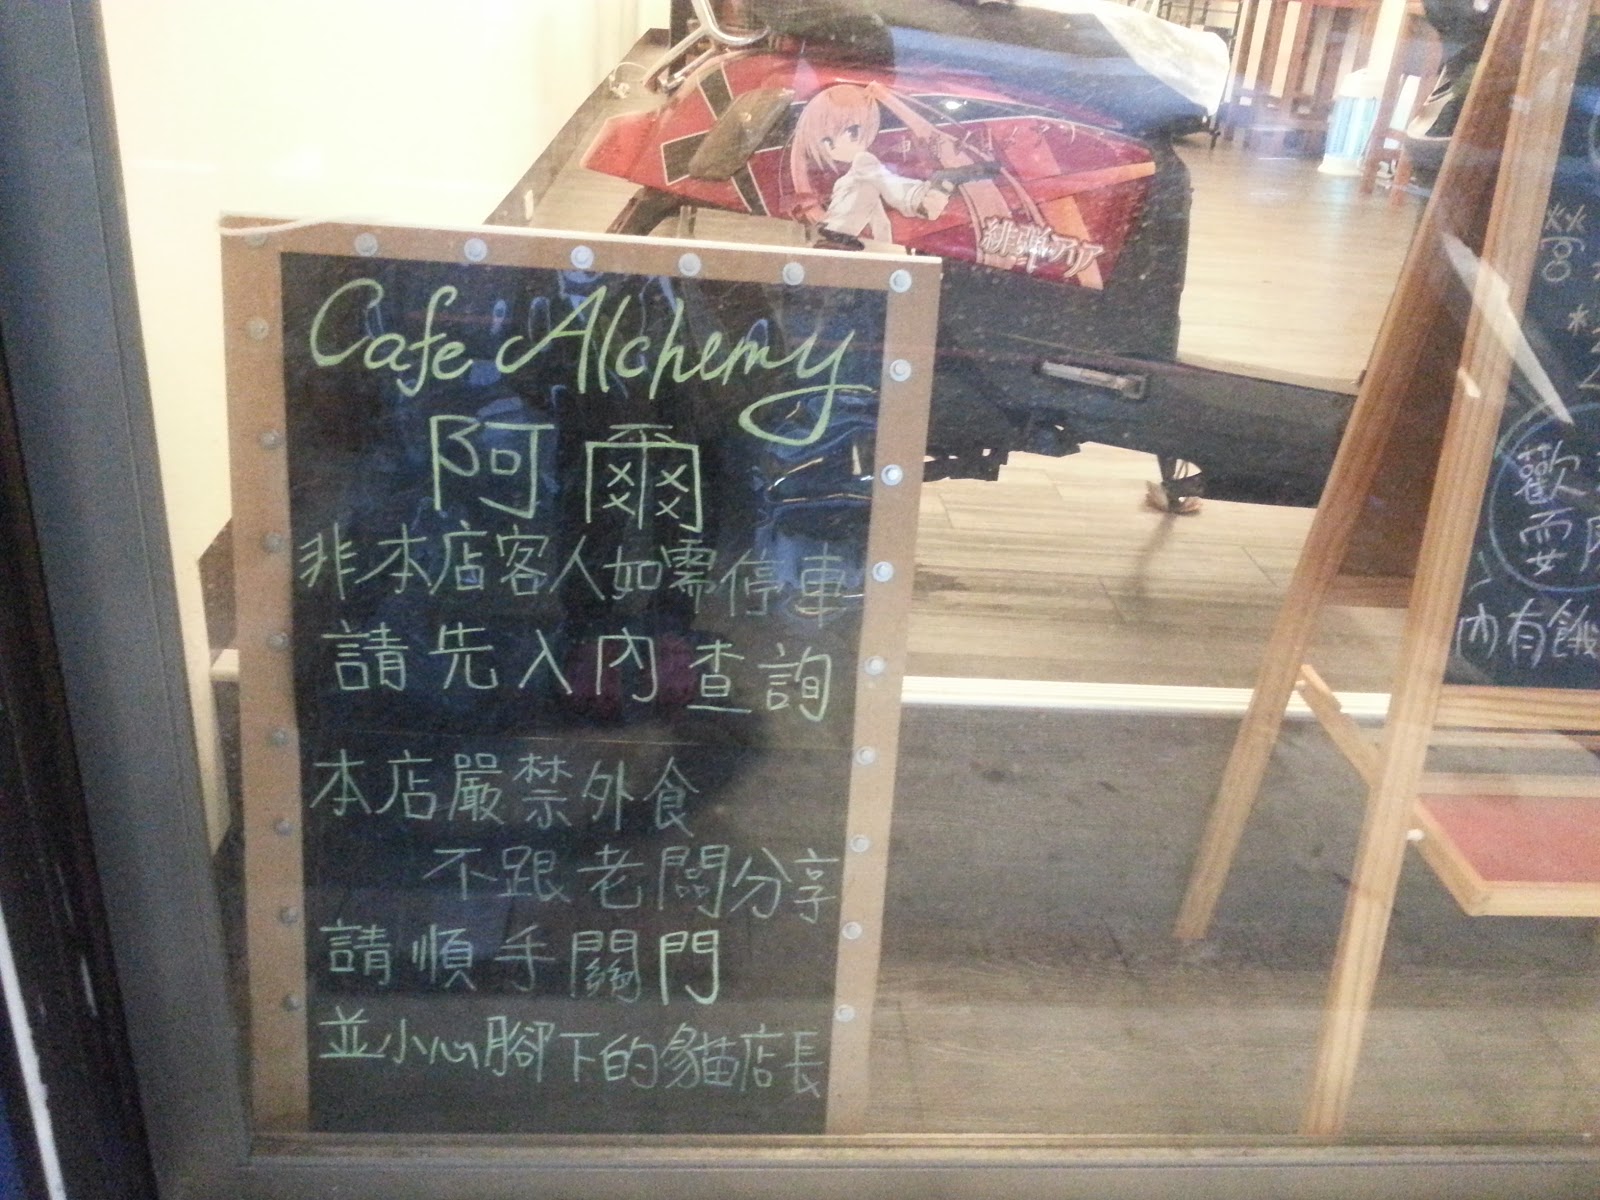 Cafe Alchemy
阿爾
非本店客人如需停車
請先入內查詢
本店嚴禁外食
不跟老闆分享
請順手關門
並小心腳下的貓店長
緋弾のアリア
歡
要
內有餓